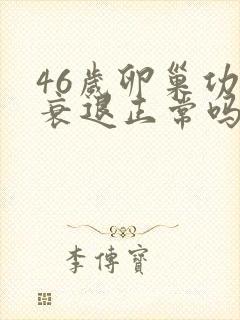 46歲卵巢功
衰退正常吗
李傳寶